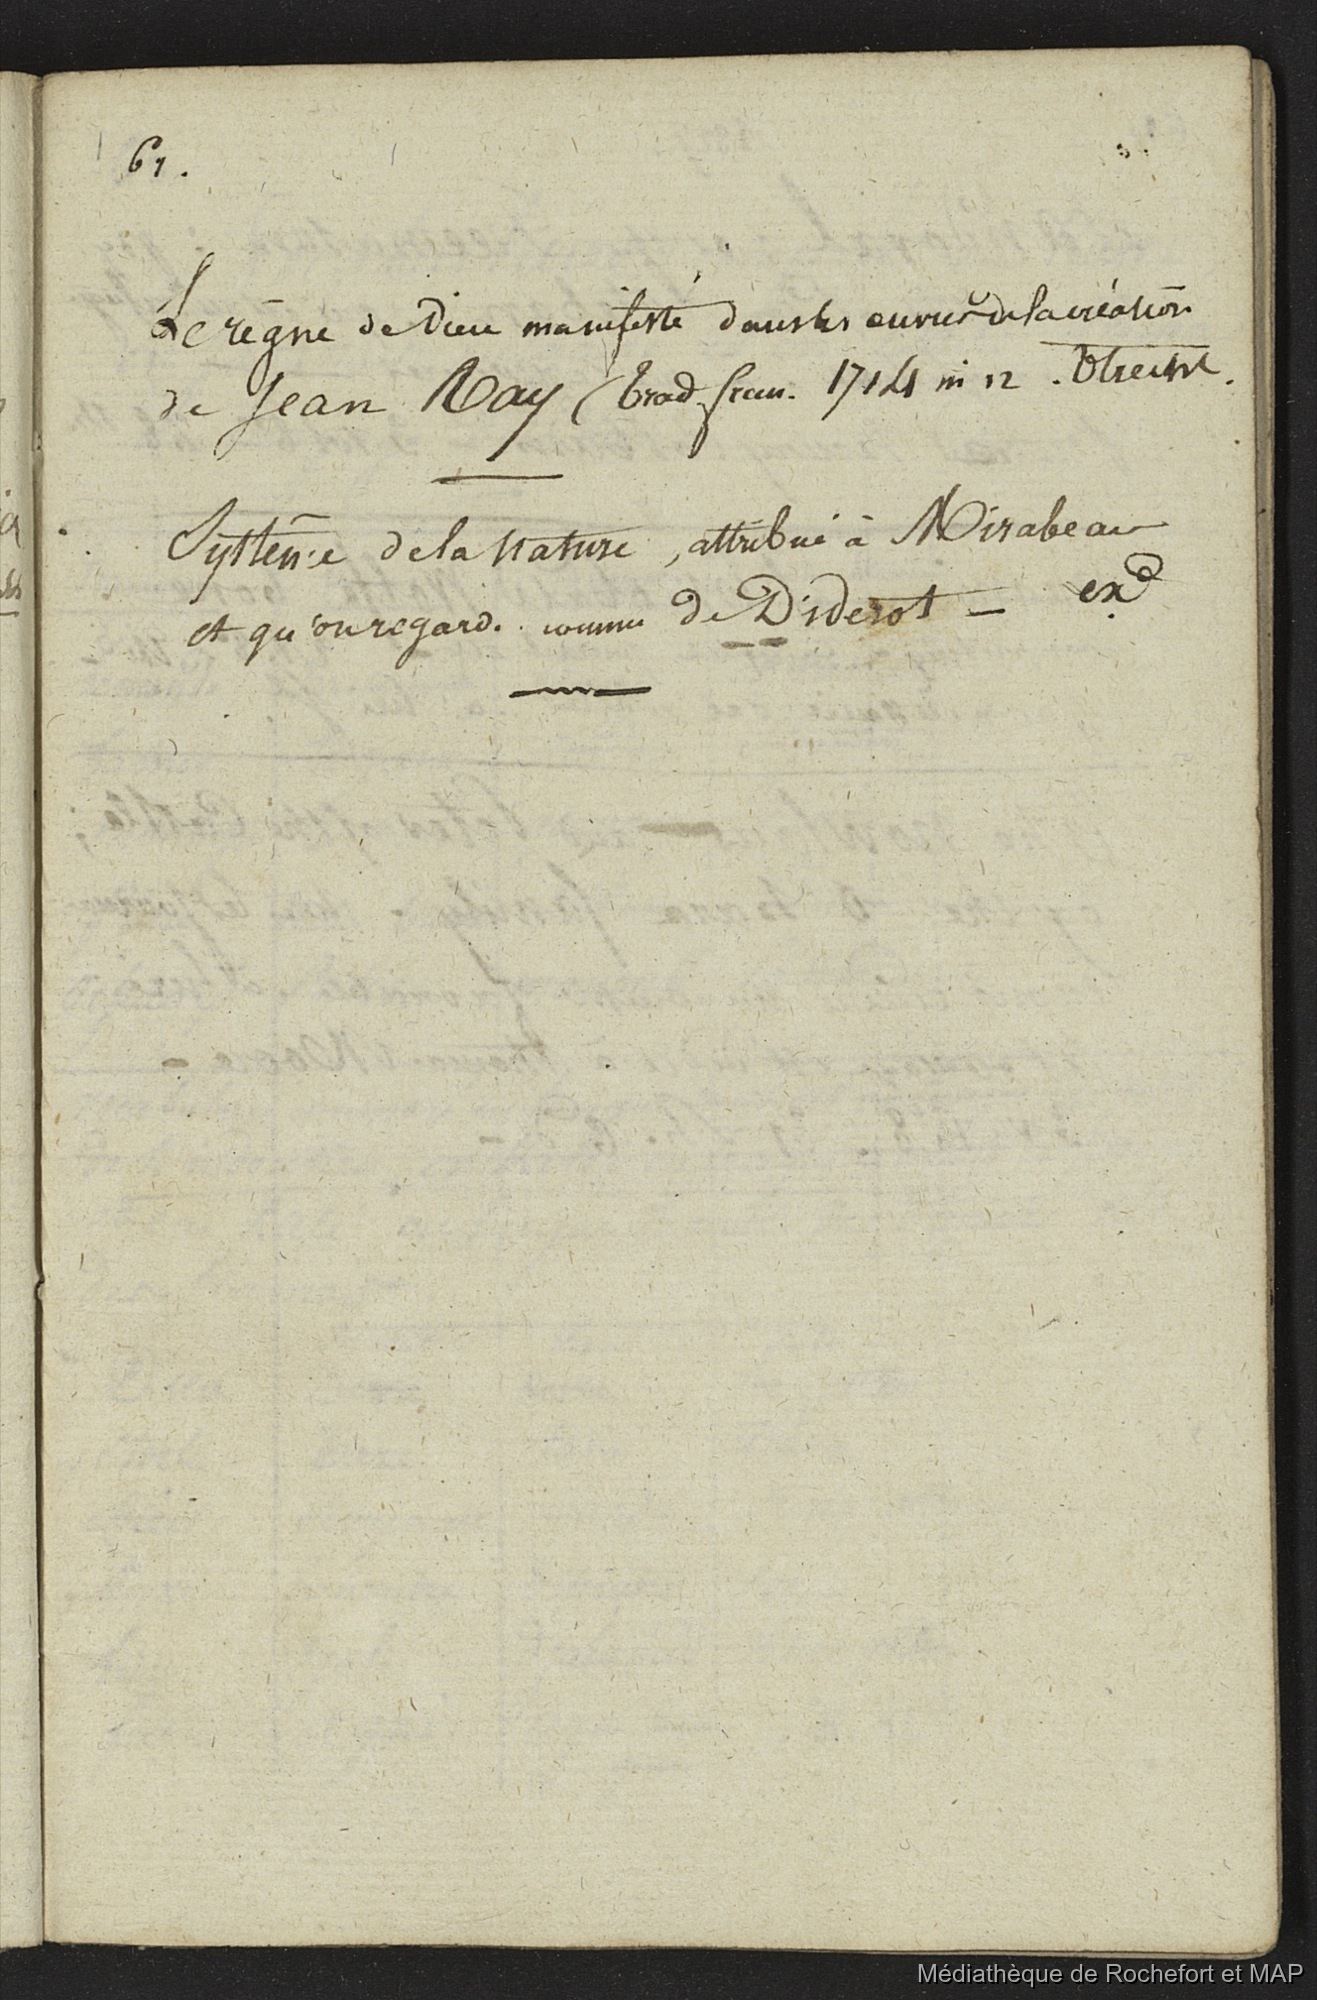 61.
Le règne de Dieu manifesté dans les œuvres de la création
de Jean Ray (trad. fran. 1714 in 12. Utrecht.
Système de la nature, attribué à Mirabeau
et qu'on regarde comme de Diderot —
Médiathèque de Rochefort et MAP